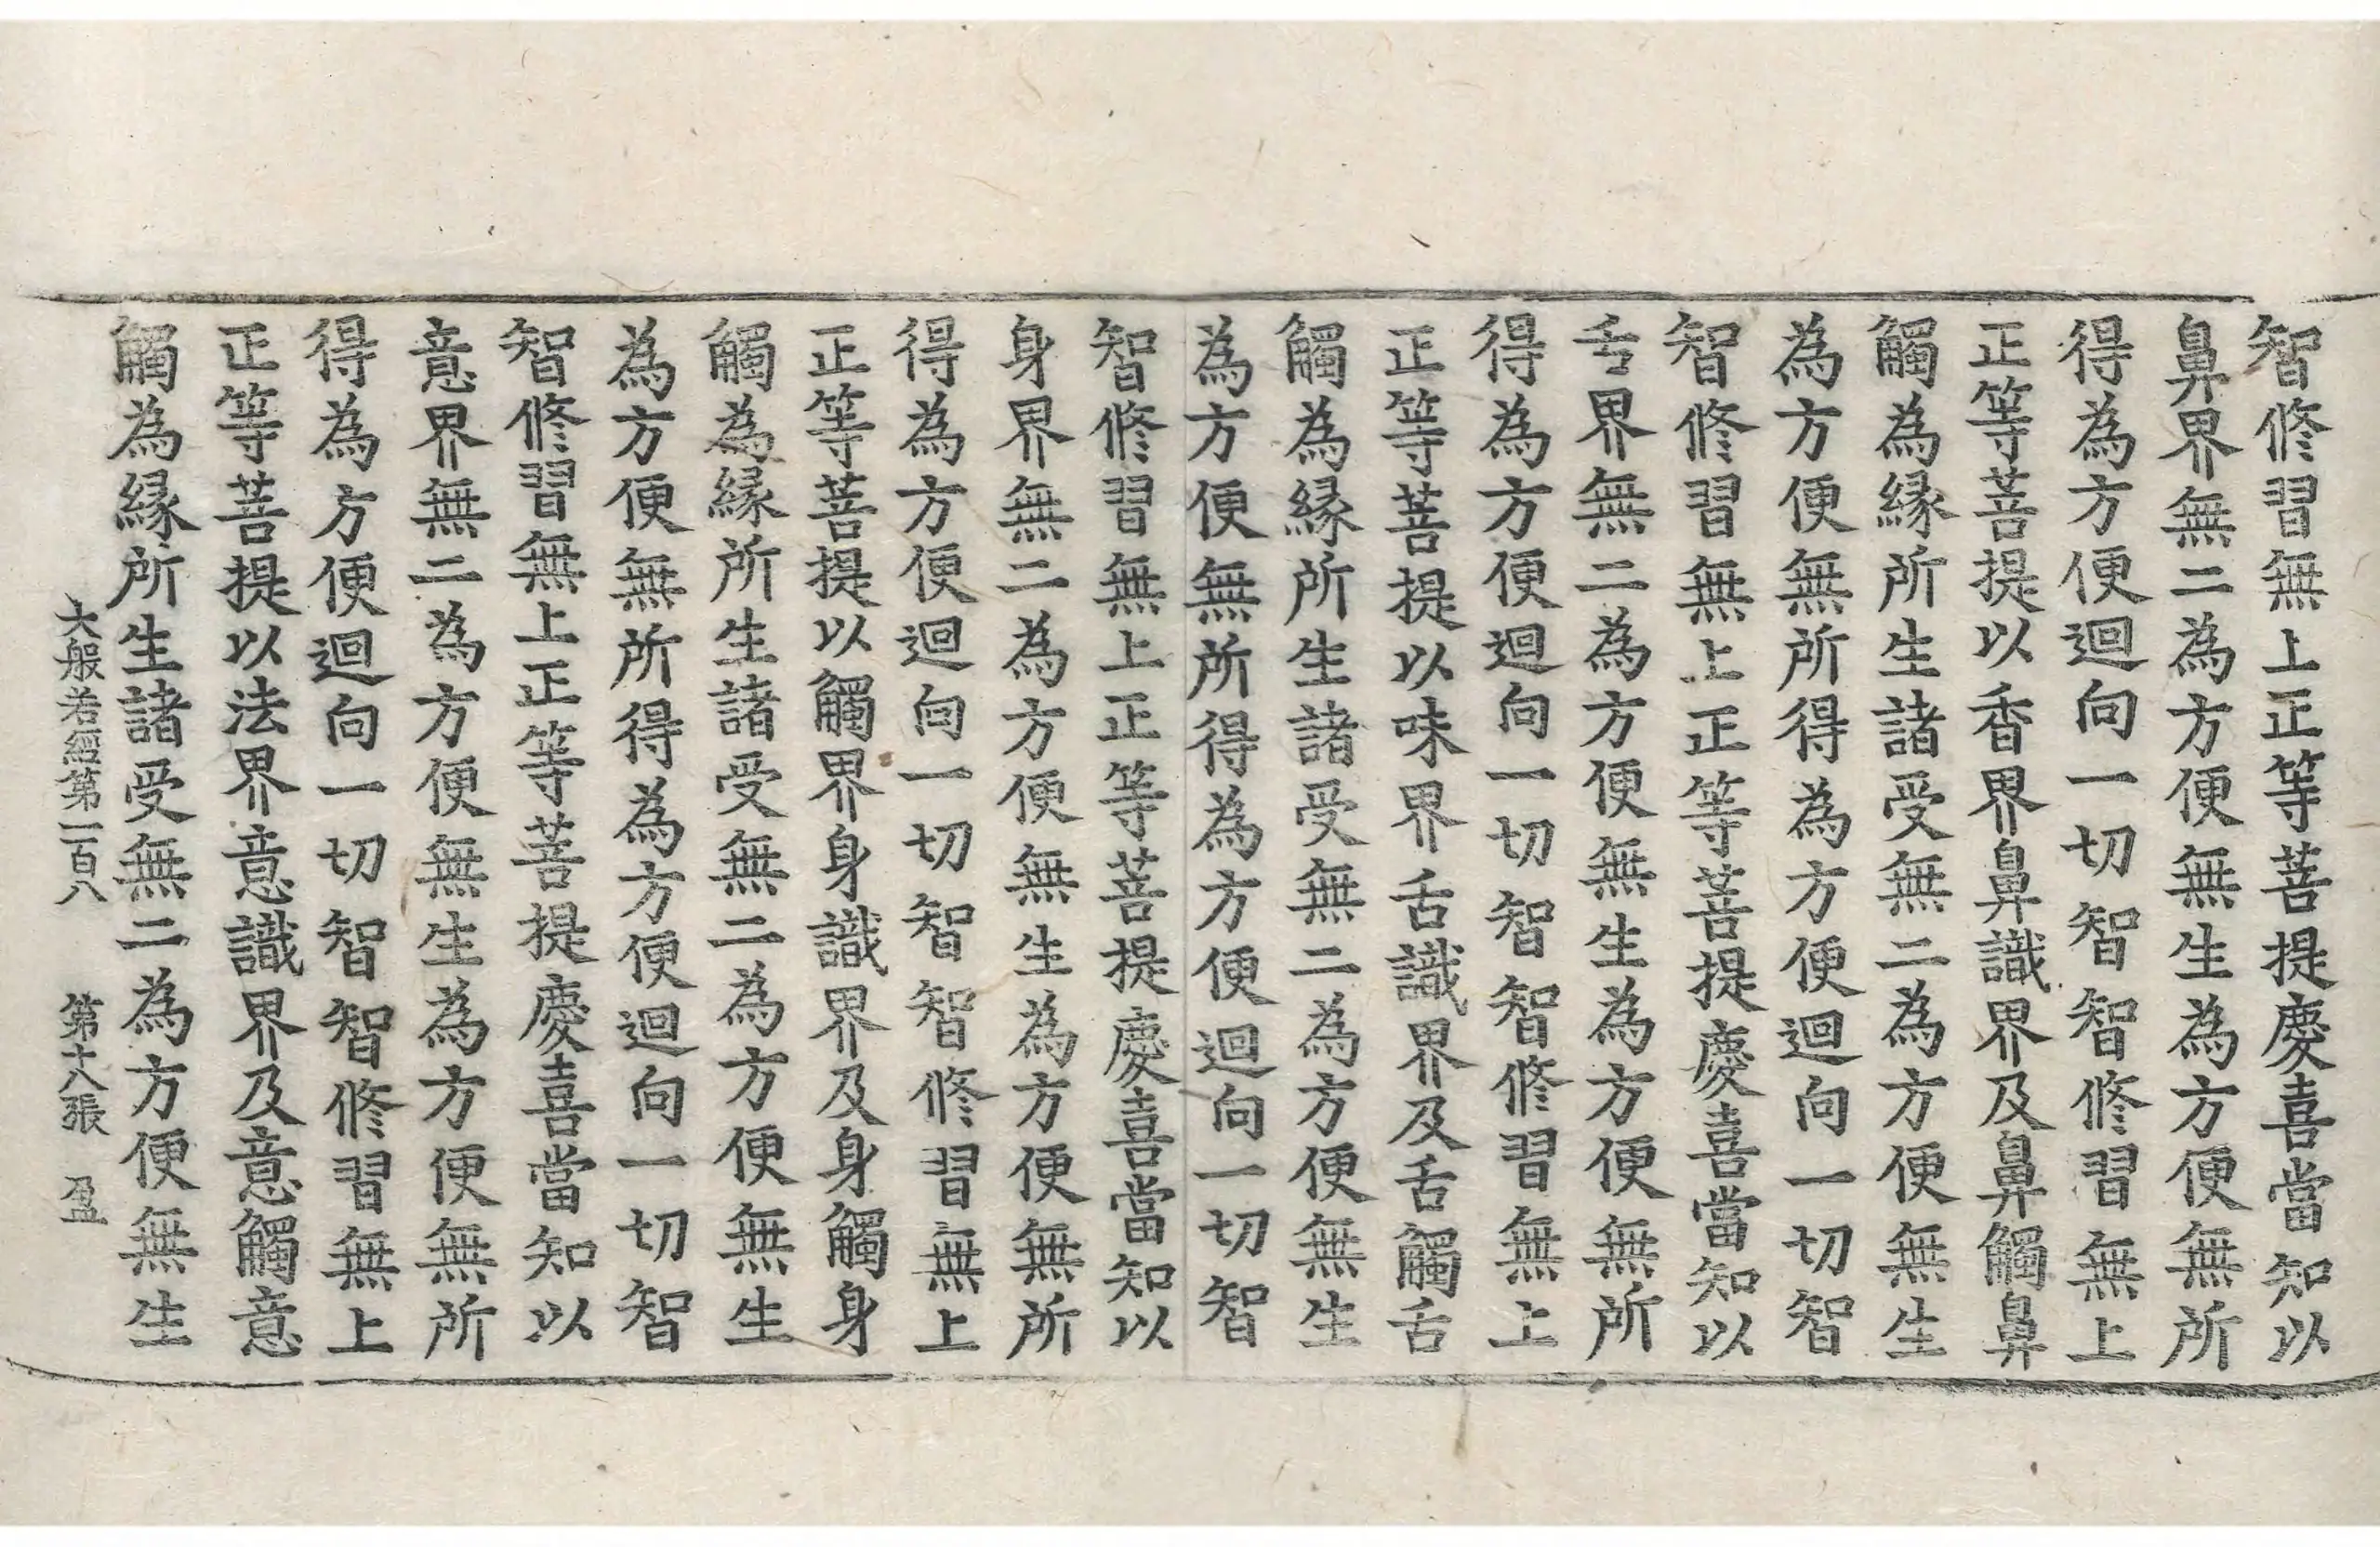 智修習無上正等菩提慶喜當知以
鼻界無二為方便無生為方便無所
得為方便迴向一切智智修習無上
正等菩提以香界鼻識界及鼻觸鼻
觸為緣所生諸受無二為方便無生
為方便無所得為方便迴向一切智
智修習無上正等菩提慶喜當知以
舌界無二為方便無生為方便無所
得為方便迴向一切智智修習無上
正等菩提以味界舌識界及舌觸舌
觸為緣所生諸受無二為方便無生
為方便無所得為方便迴向一切智
智修習無上正等菩提慶喜當知以
身界無二為方便無生為方便無所
得為方便迴向一切智智修習無上
正等菩提以觸界身識界及身觸身
觸為緣所生諸受無二為方便無生
為方便無所得為方便迴向一切智
智修習無上正等菩提慶喜當知以
意界無二為方便無生為方便無所
得為方便迴向一切智智修習無上
正等菩提以法界意識界及意觸意
觸為緣所生諸受無二為方便無生
大般若經第一百八 第十八張 盈